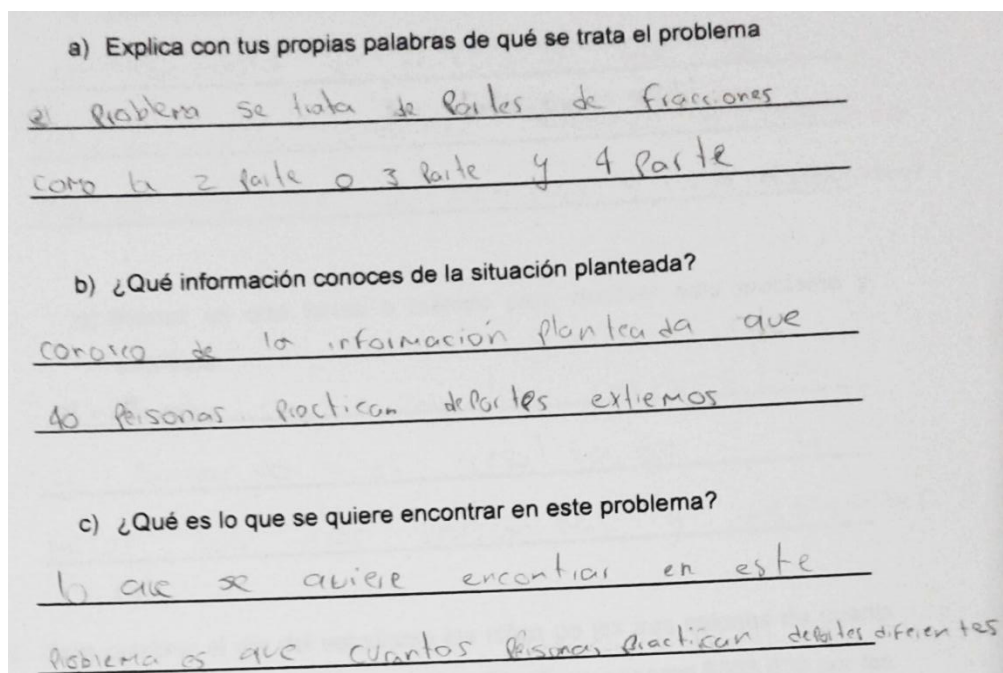 a) Explica con tus propias palabras de qué se trata el problema
el problema se trata de Partes de fracciones
como la 2 parte o 3 Parte y 4 Parte
b) ¿Qué información conoces de la situación planteada?
conosco de la información planteada que
40 Personas Practican deportes extremos
c) ¿Qué es lo que se quiere encontrar en este problema?
lo que se quiere encontrar en este
Problema es que cuantos Personas Practican deportes diferentes